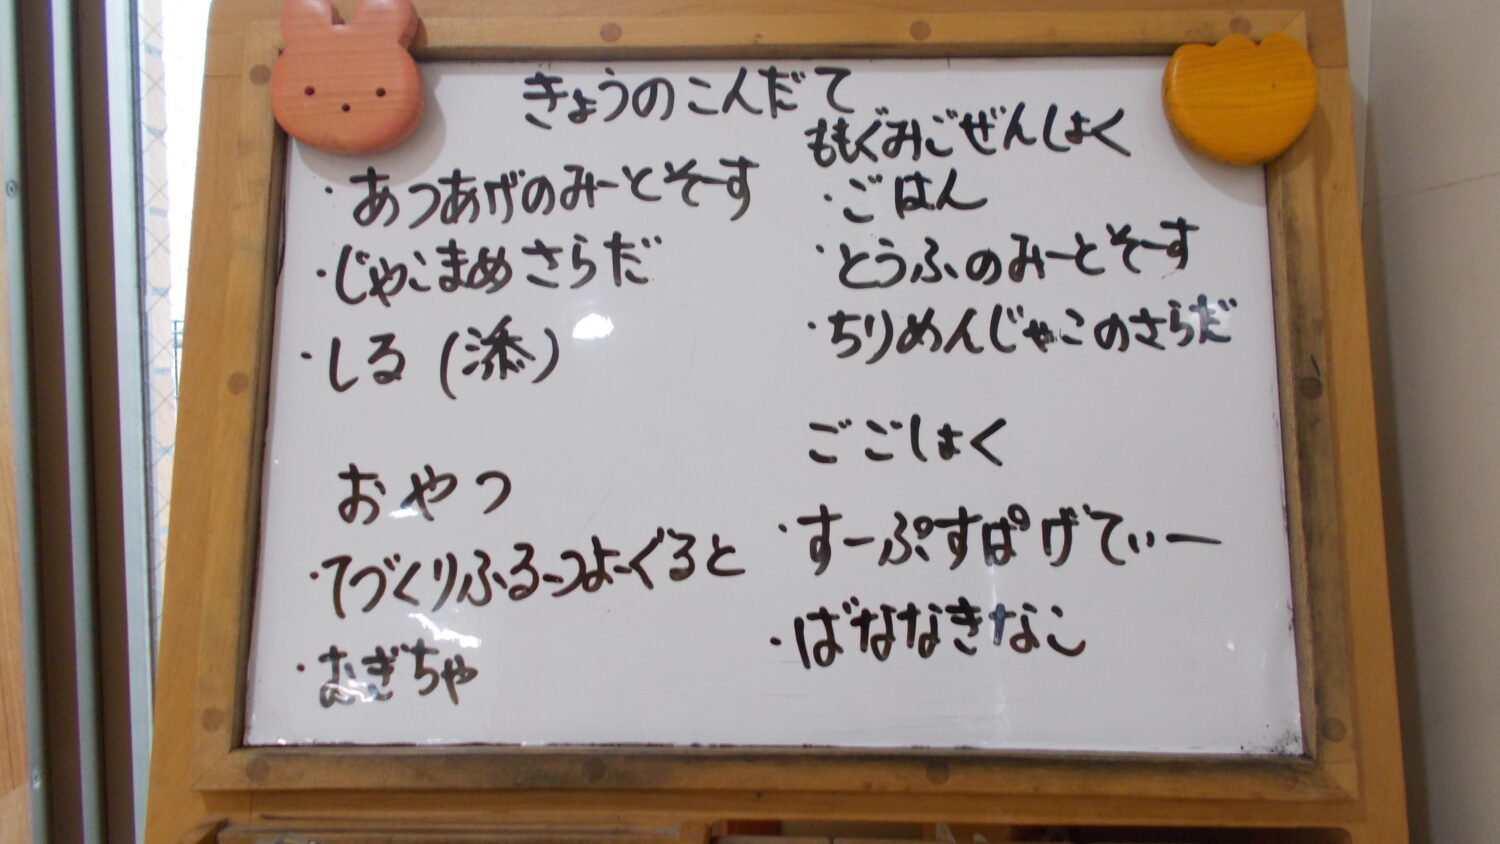 きょうのこんだて
・あつあげのみーとそーす
・じゃこまめさらだ
・しる(添)
おやつ
・てづくりふるーつよーぐると
・むぎちゃ
ももぐみごぜんしょく
・ごはん
・とうふのみーとそーす
・ちりめんじゃこのさらだ
ごごしょく
・すーぷすぱげてぃー
・ばななきなこ